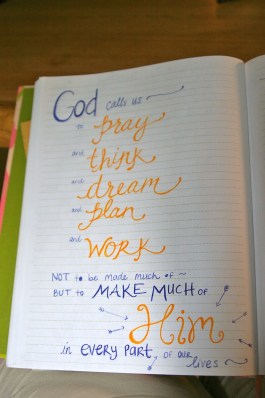 God calls us
to pray
and think
and dream
and plan
and WORK
NOT to be made much of ~
BUT to MAKE MUCH of
Him
in EVERY PART of our
lives